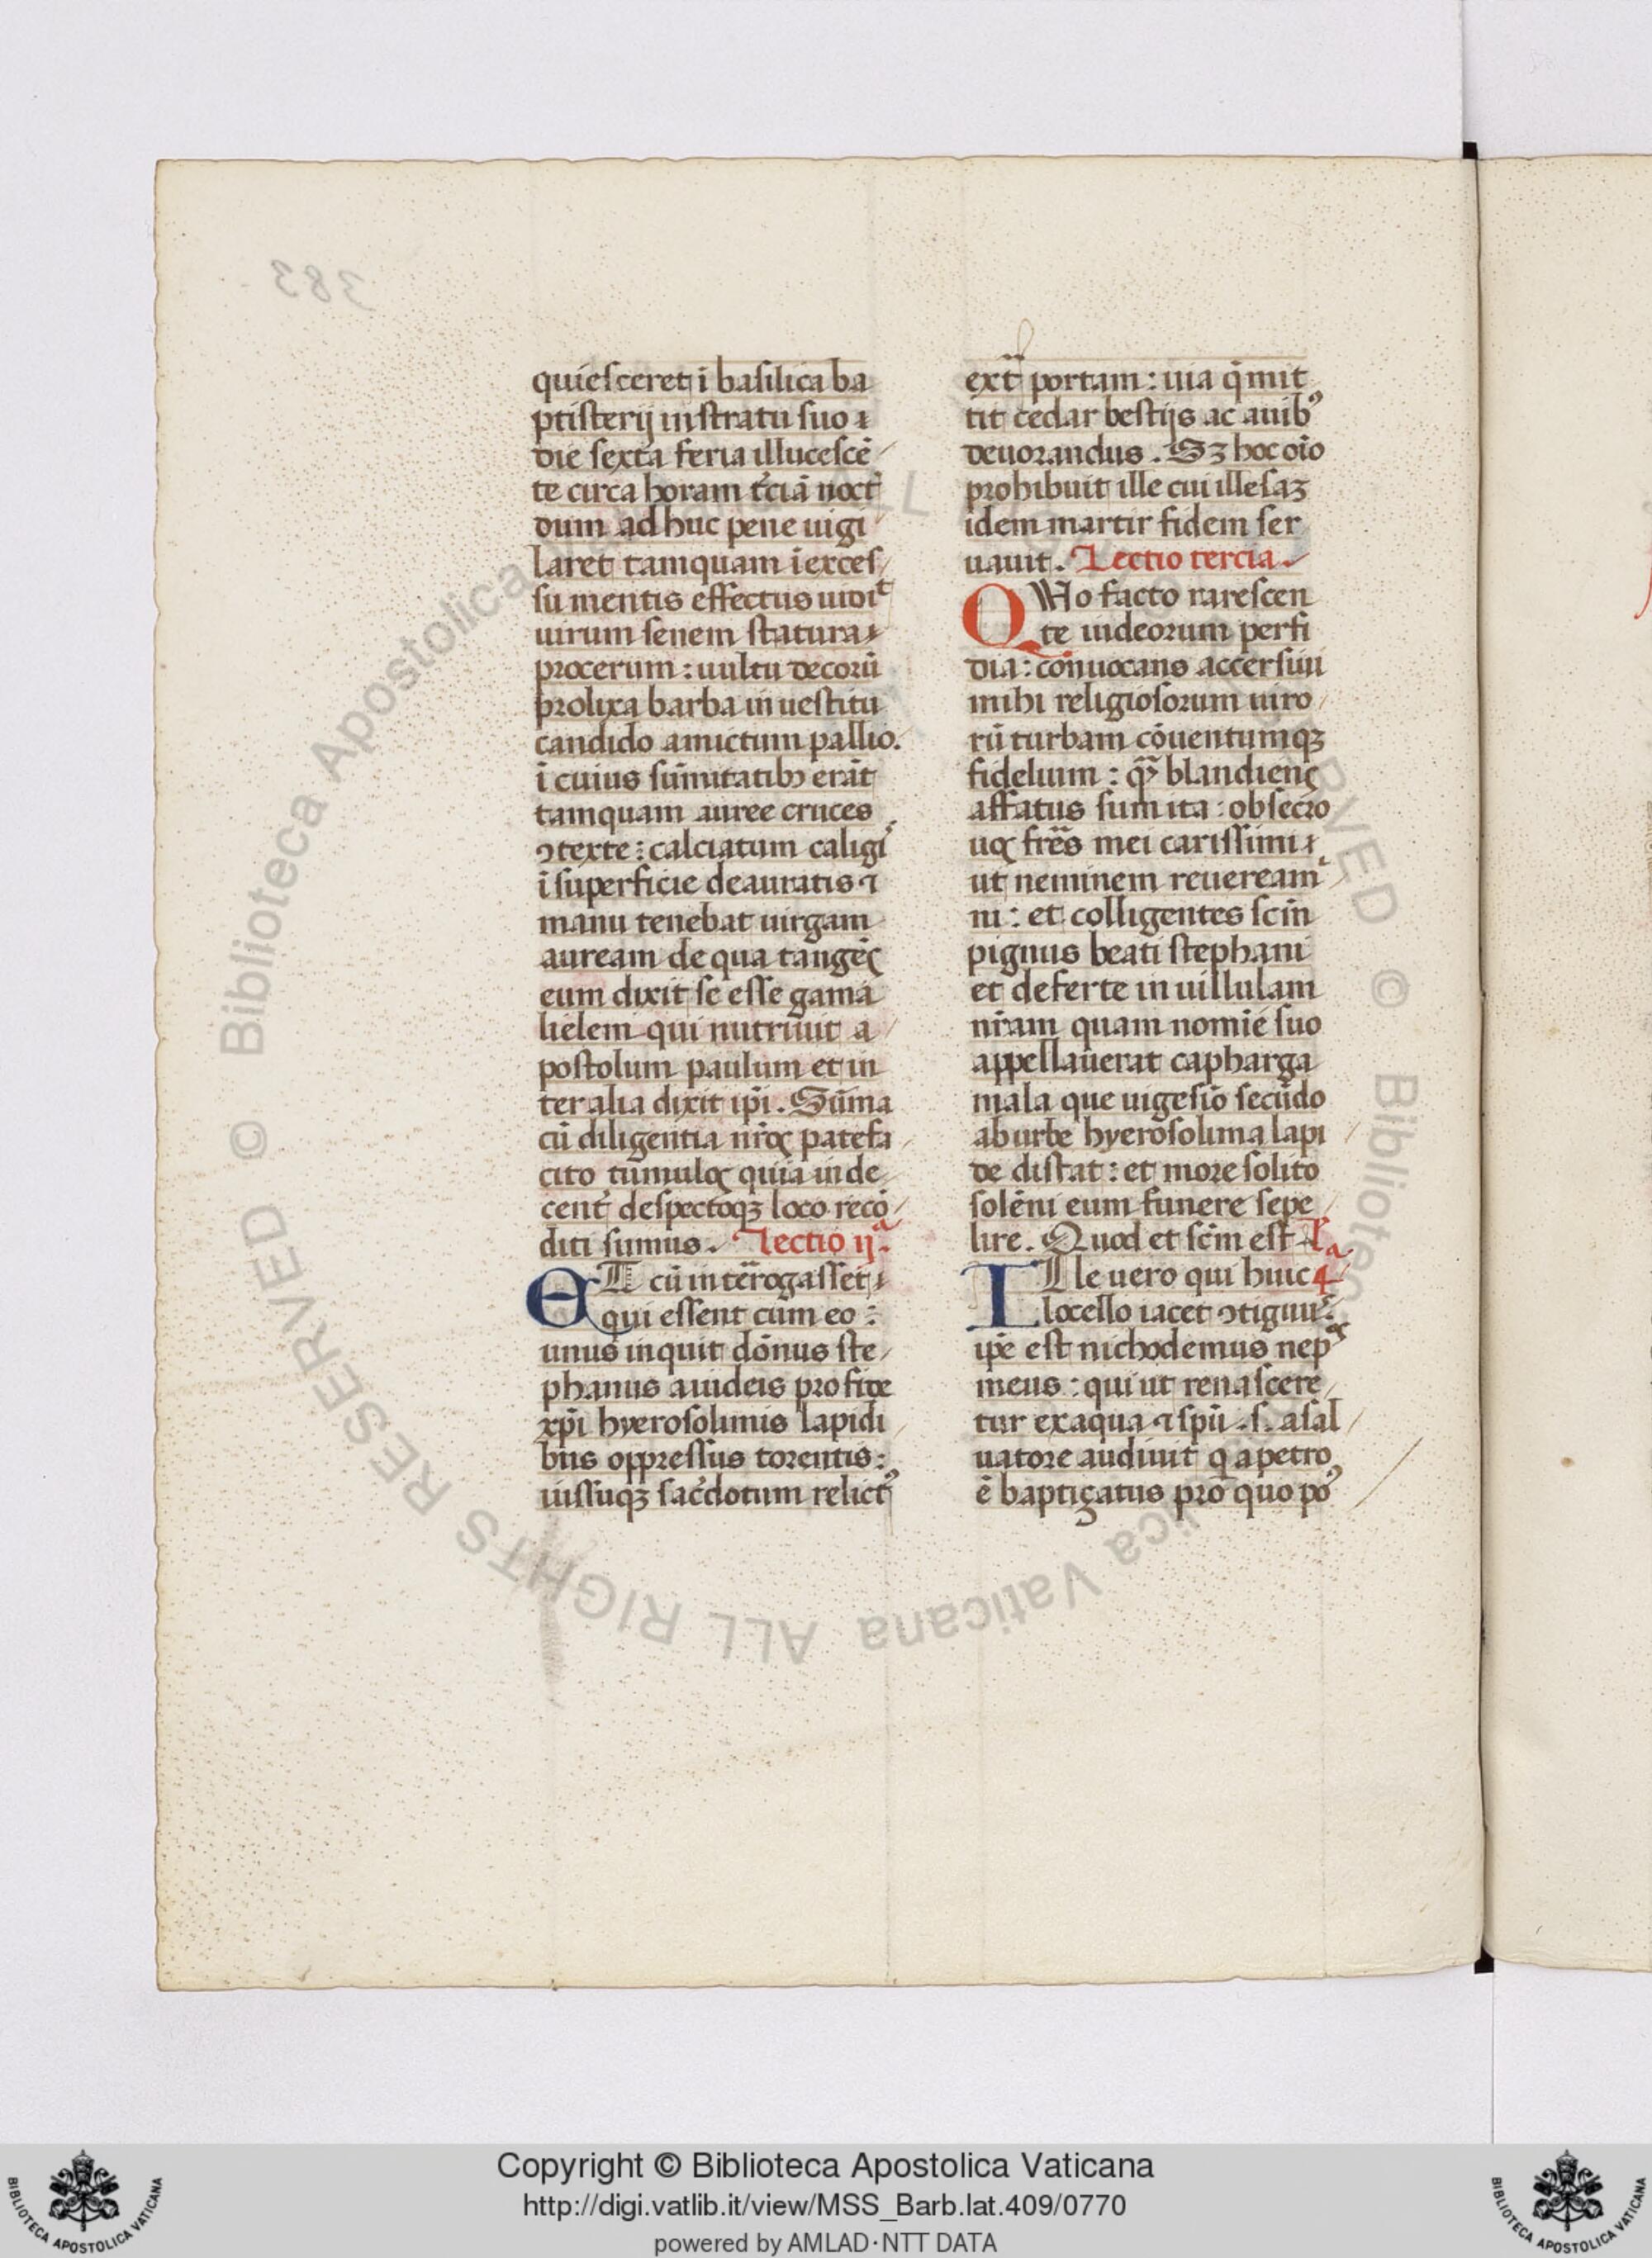 383
quiesceret ī basilica ba
ptisterij in stratu suo ⁊
die sexta feria illucescē
te circa horam t̄ciā noct̄
dum ad huc pene uigi
laret tamquam ī exces
su mentis effectus uidiᵗ
uirum senem statura
procerum : uultu decorū
prolixa barba in uestitu
candido amictum pallio.
ī cuius sūmitatibꝫ erāt
tamquam auree cruces
ꝯtexte : calciatum caligi
ī superficie deauratis ⁊
manu tenebat uirgam
auream de qua tangēs
eum dixit se esse gama
lielem qui nutriuit a
postolum paulum et in
ter alia dixit ip̄i. Sūma
cū diligentia nr̄os patefa
cito tumulos quia inde
cent̄ despectoqꝫ loco recō
diti sumus. Lectio ijᵃ.
ET cū interrogasset
qui essent cum eo :
unus inquit dōnus ste
phanus a iudeis pro fide
xp̄i hyerosolimis lapidi
bus oppressus torentis :
iussuqꝫ sac̄dotum relictꝰ
ext̄ portam : uia q̄ mit
tit cedar bestijs ac auibꝰ
deuorandus. Sꝫ hoc oīo
prohibuit ille cui illesaꝫ
idem martir fidem ser
uauit. Lectio tercia.
QUo facto rarescen
te iudeorum perfi
dia : conuocans accersiui
mihi religiosorum uiro
rū turbam cōuentumqꝫ
fidelium : qͣꝫ blandiens
affatus sum ita : obsecro
uos fr̄es mei carissimi
ut neminem reuereami
ni : et colligentes scīn
pignus beati stephani
et deferte in uillulam
nr̄am quam nomīe suo
appellauerat capharga
mala que uigesīo secūdo
ab urbe hyerosolima lapi
de distat : et more solito
solēni eum funere sepe
lire. Quod et sc̄m est. l̄
ILle uero qui huic 4ᵃ
locello iacet ꝯtiguus.
ip̄e est nichodemus nepos
meus : qui ut renascere
tur ex aqua ⁊ spū .s. a sal
uatore audiuit q̄ a petro
ē baptiçatus pro quo poꝰ
© Biblioteca Apostolica Vaticana ALL RIGHTS RESERVED
Copyright © Biblioteca Apostolica Vaticana
http://digi.vatlib.it/view/MSS_Barb.lat.409/0770
powered by AMLAD·NTT DATA
BIBLIOTECA APOSTOLICA VATICANA
BIBLIOTECA APOSTOLICA VATICANA